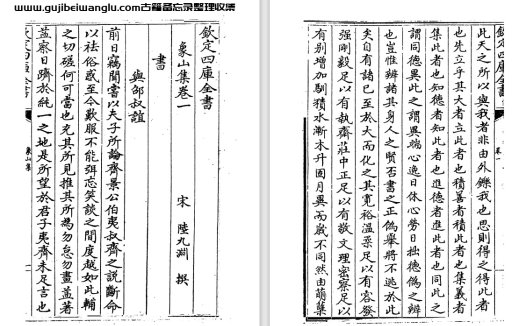 www.gujibeiwanglu.com古籍备忘录整理收集
欽定四庫全書
象山集卷一
宋 陸九淵 撰
書
與邵叔誼
前日竊聞嘗以夫子所論齊景公伯夷叔齊之說斷命
以祛俗惑至今歎服不能弭忘笑談之間度越如此輔
之切磋何可當也充其所見推其所為勿怠勿畫益著
益察日躋於純一之地是所望於君子夷齊未足言也
象山集
欽定四庫全書
卷一
此天之所以與我者非由外鑠我也思則得之得此者
也先立乎其大者立此者也積善者積此者也集義者
集此者也知德者知此者也進德者進此者也同此之
謂同德異此之謂異端心逸日休心勞日拙德偽之辨
也豈惟辨諸其身人之賢否書之正偽舉將不逃於此
矣自有諸己至於大而化之其寬裕溫柔足以有容發
強剛毅足以有執齋莊中正足以有敬文理密察足以
有别增加馴積水漸木升固月異而歲不同然由萌蘖